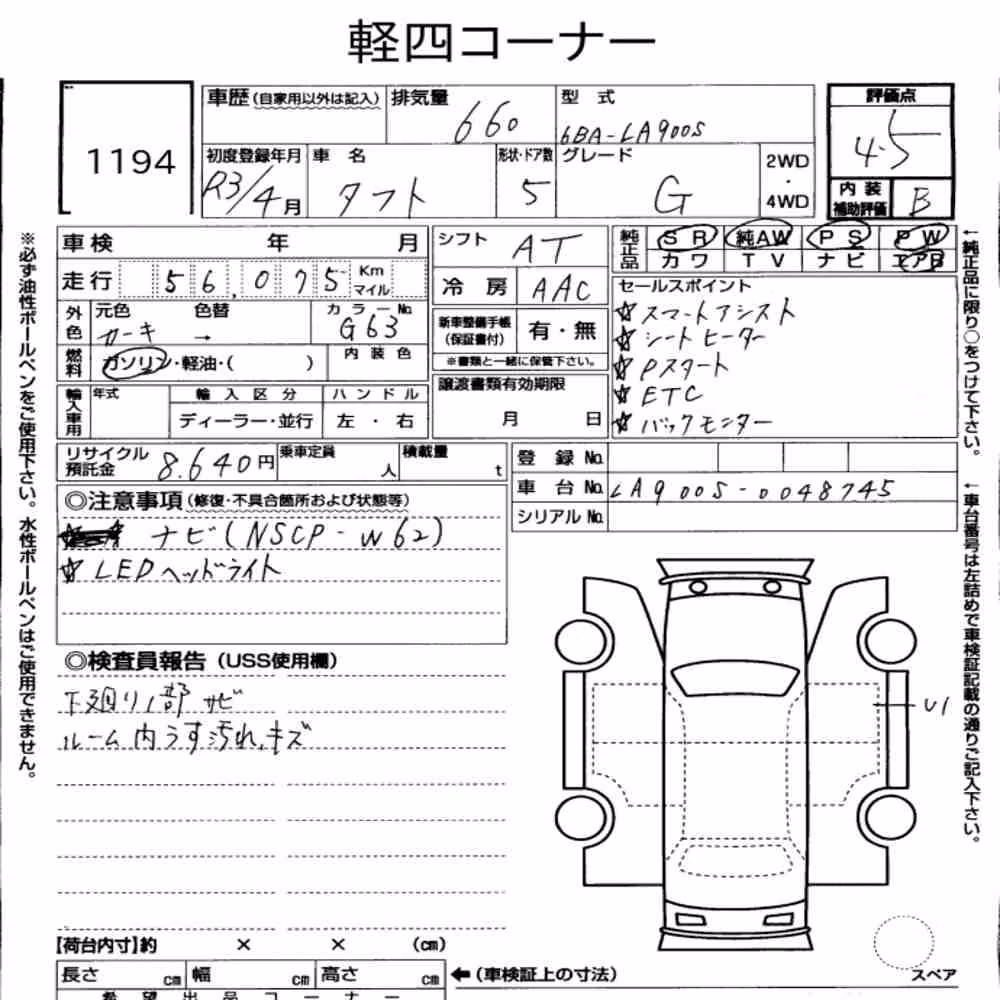 軽四コーナー
1194
車歴 (自家用以外は記入) 排気量 660 型式 6BA-LA900S
評価点 4.5
初度登録年月 R3/4月 車名 タフト 形状・ドア数 5 グレード G 2WD ・ 4WD
内装補助評価 B
車検 年 月
走行 56,075 Km マイル
外色 元色 カーキ 色替 → カラーNo. G63
燃料 ガソリン・軽油・( ) 内装色
輸入車用 年式 輸入区分 ディーラー・並行 ハンドル 左・右
シフト AT
冷房 AAC
新車整備手帳(保証書付) 有・無
※書類と一緒に保管下さい。
譲渡書類有効期限
月 日
純正品 SR 純AW PS PW
カワ TV ナビ エアB
セールスポイント
☆スマートアシスト
☆シートヒーター
☆Pスタート
☆ETC
☆バックモニター
リサイクル預託金 8.640円 乗車定員 人 積載量 t
登録No.
車台No. LA900S-0048745
シリアルNo.
◎注意事項(修復・不具合箇所および状態等)
ナビ(NSCP-W62)
☆LEDヘッドライト
◎検査員報告(USS使用欄)
下廻り1部サビ
ルーム内うす汚れ、キズ
U1
【荷台内寸】約 × × (cm)
長さ cm 幅 cm 高さ cm ←(車検証上の寸法)
希望出品コーナー
スペア
※必ず油性ボールペンをご使用下さい。水性ボールペンはご使用できません。
←純正品に限り○をつけて下さい。
←車台番号は左詰めで車検証記載の通りご記入下さい。